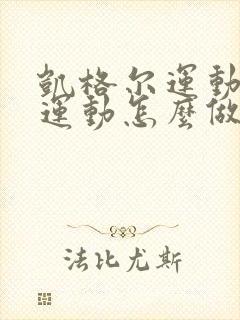 凱格尔運動
運動怎麼做
法比尤斯